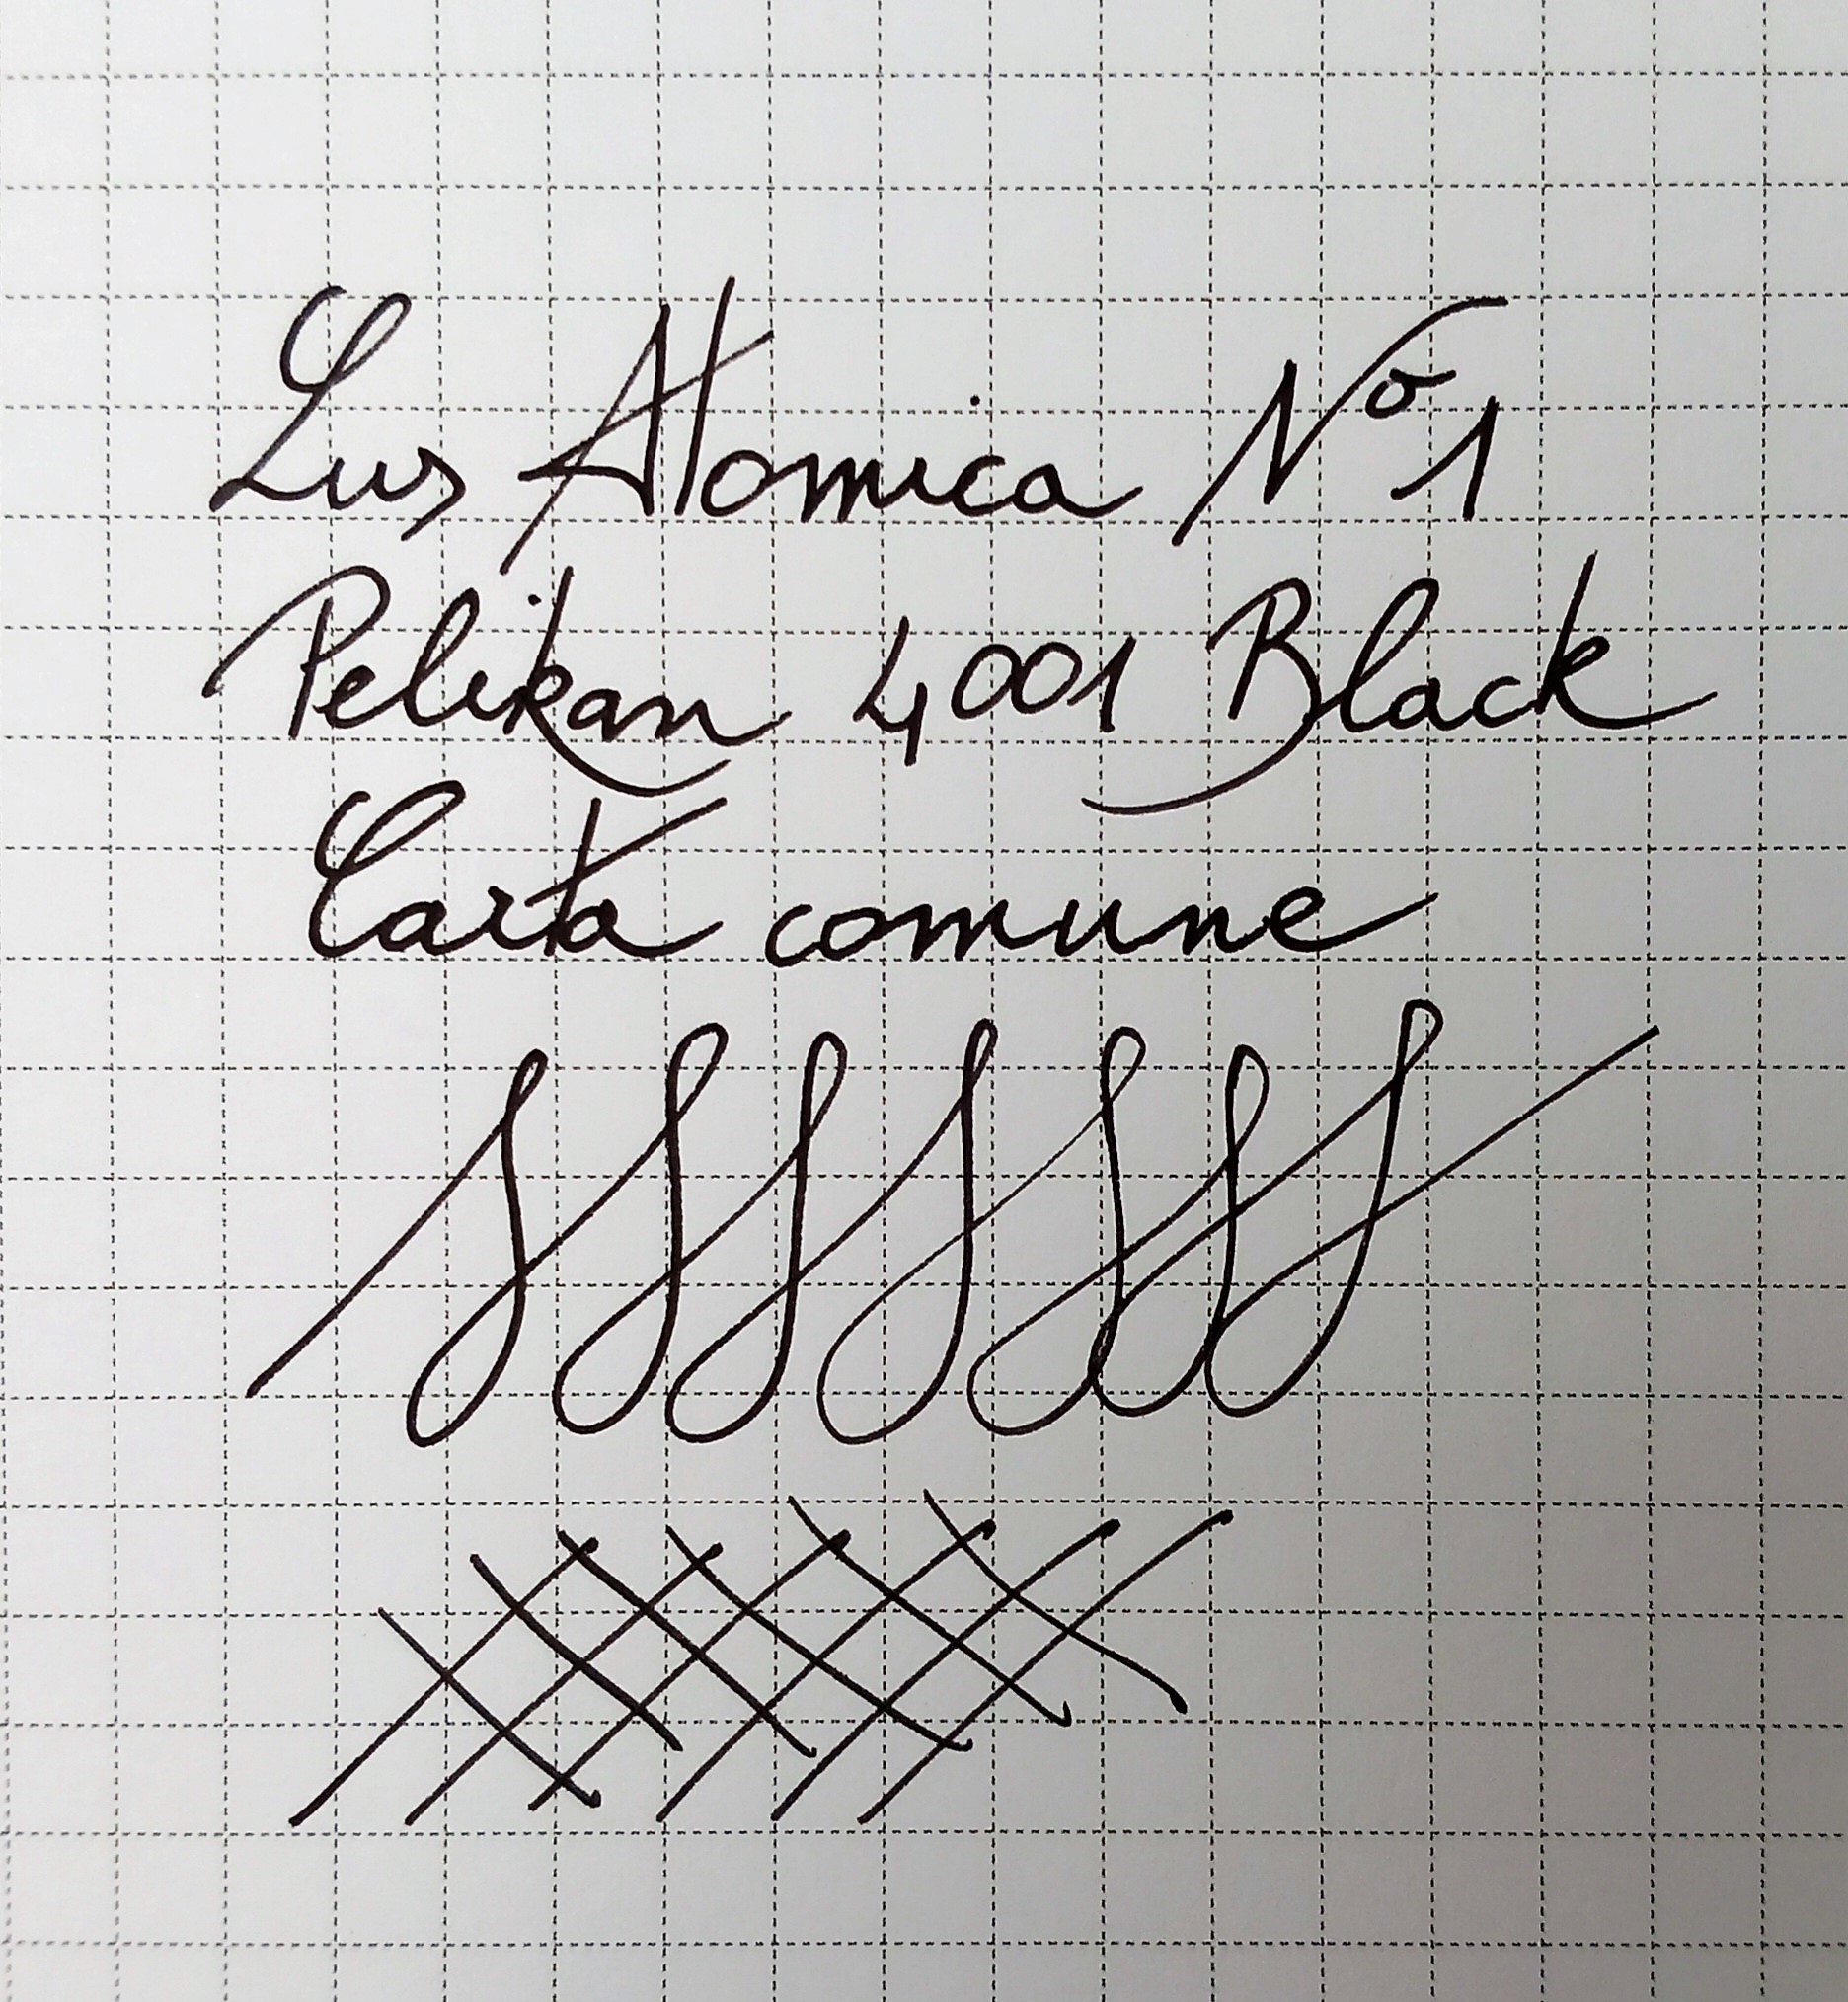 Lus Atomica Nº 1
Pelikan 4001 Black
Carta comune